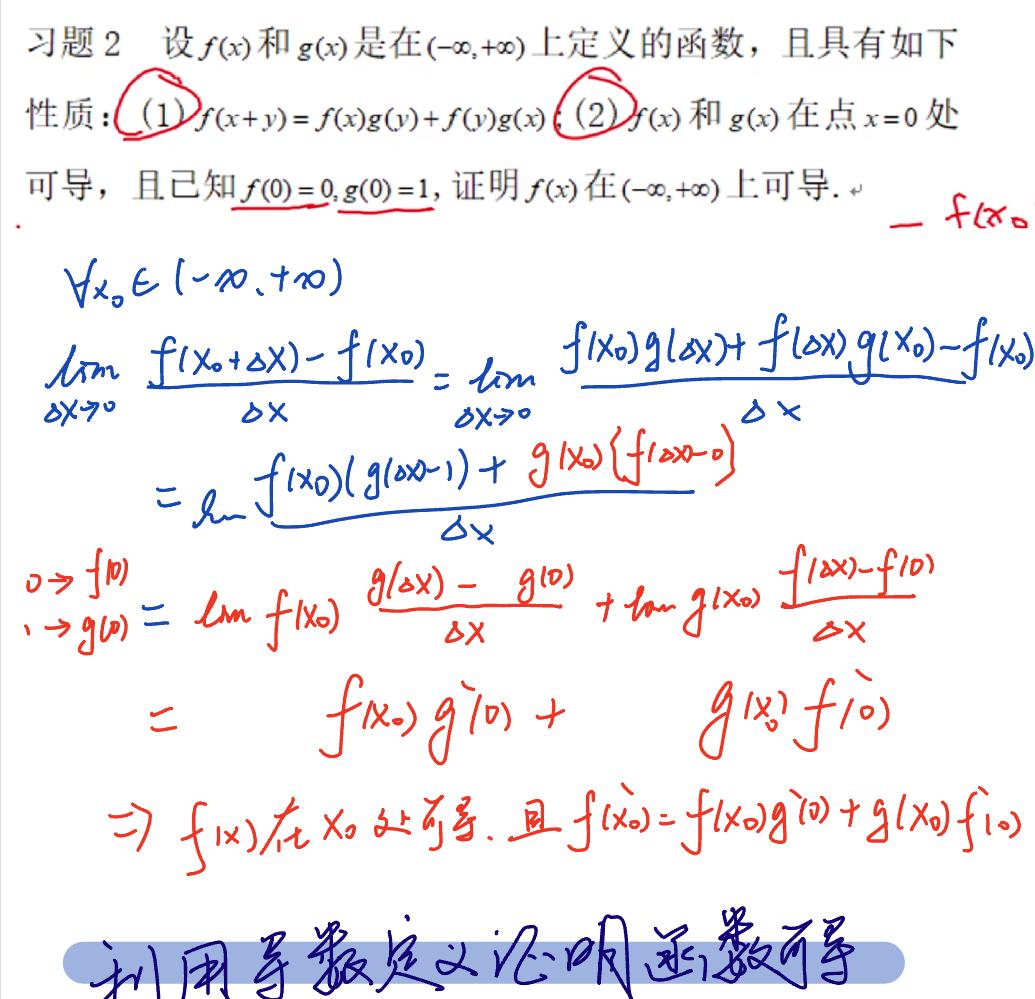 习题 2 设 f(x) 和 g(x) 是在 (-∞,+∞) 上定义的函数，且具有如下
性质：(1) f(x+y)=f(x)g(y)+f(y)g(x)；(2) f(x) 和 g(x) 在点 x=0 处
可导，且已知 f(0)=0, g(0)=1, 证明 f(x) 在 (-∞,+∞) 上可导.
— f(x₀
∀x₀∈(-∞,+∞)
lim_{Δx→0} (f(x₀+Δx)-f(x₀))/Δx = lim_{Δx→0} (f(x₀)g(Δx)+f(Δx)g(x₀)-f(x₀))/Δx
= lim (f(x₀)(g(Δx)-1)+g(x₀)[f(Δx)-0])/Δx
0→f(0)
1→g(0) = lim f(x₀) (g(Δx)-g(0))/Δx + lim g(x₀) (f(Δx)-f(0))/Δx
= f(x₀)g'(0)+ g(x₀)f'(0)
⇒ f(x)在x₀处可导.且f'(x₀)=f(x₀)g'(0)+g(x₀)f'(0)
利用导数定义证明函数可导